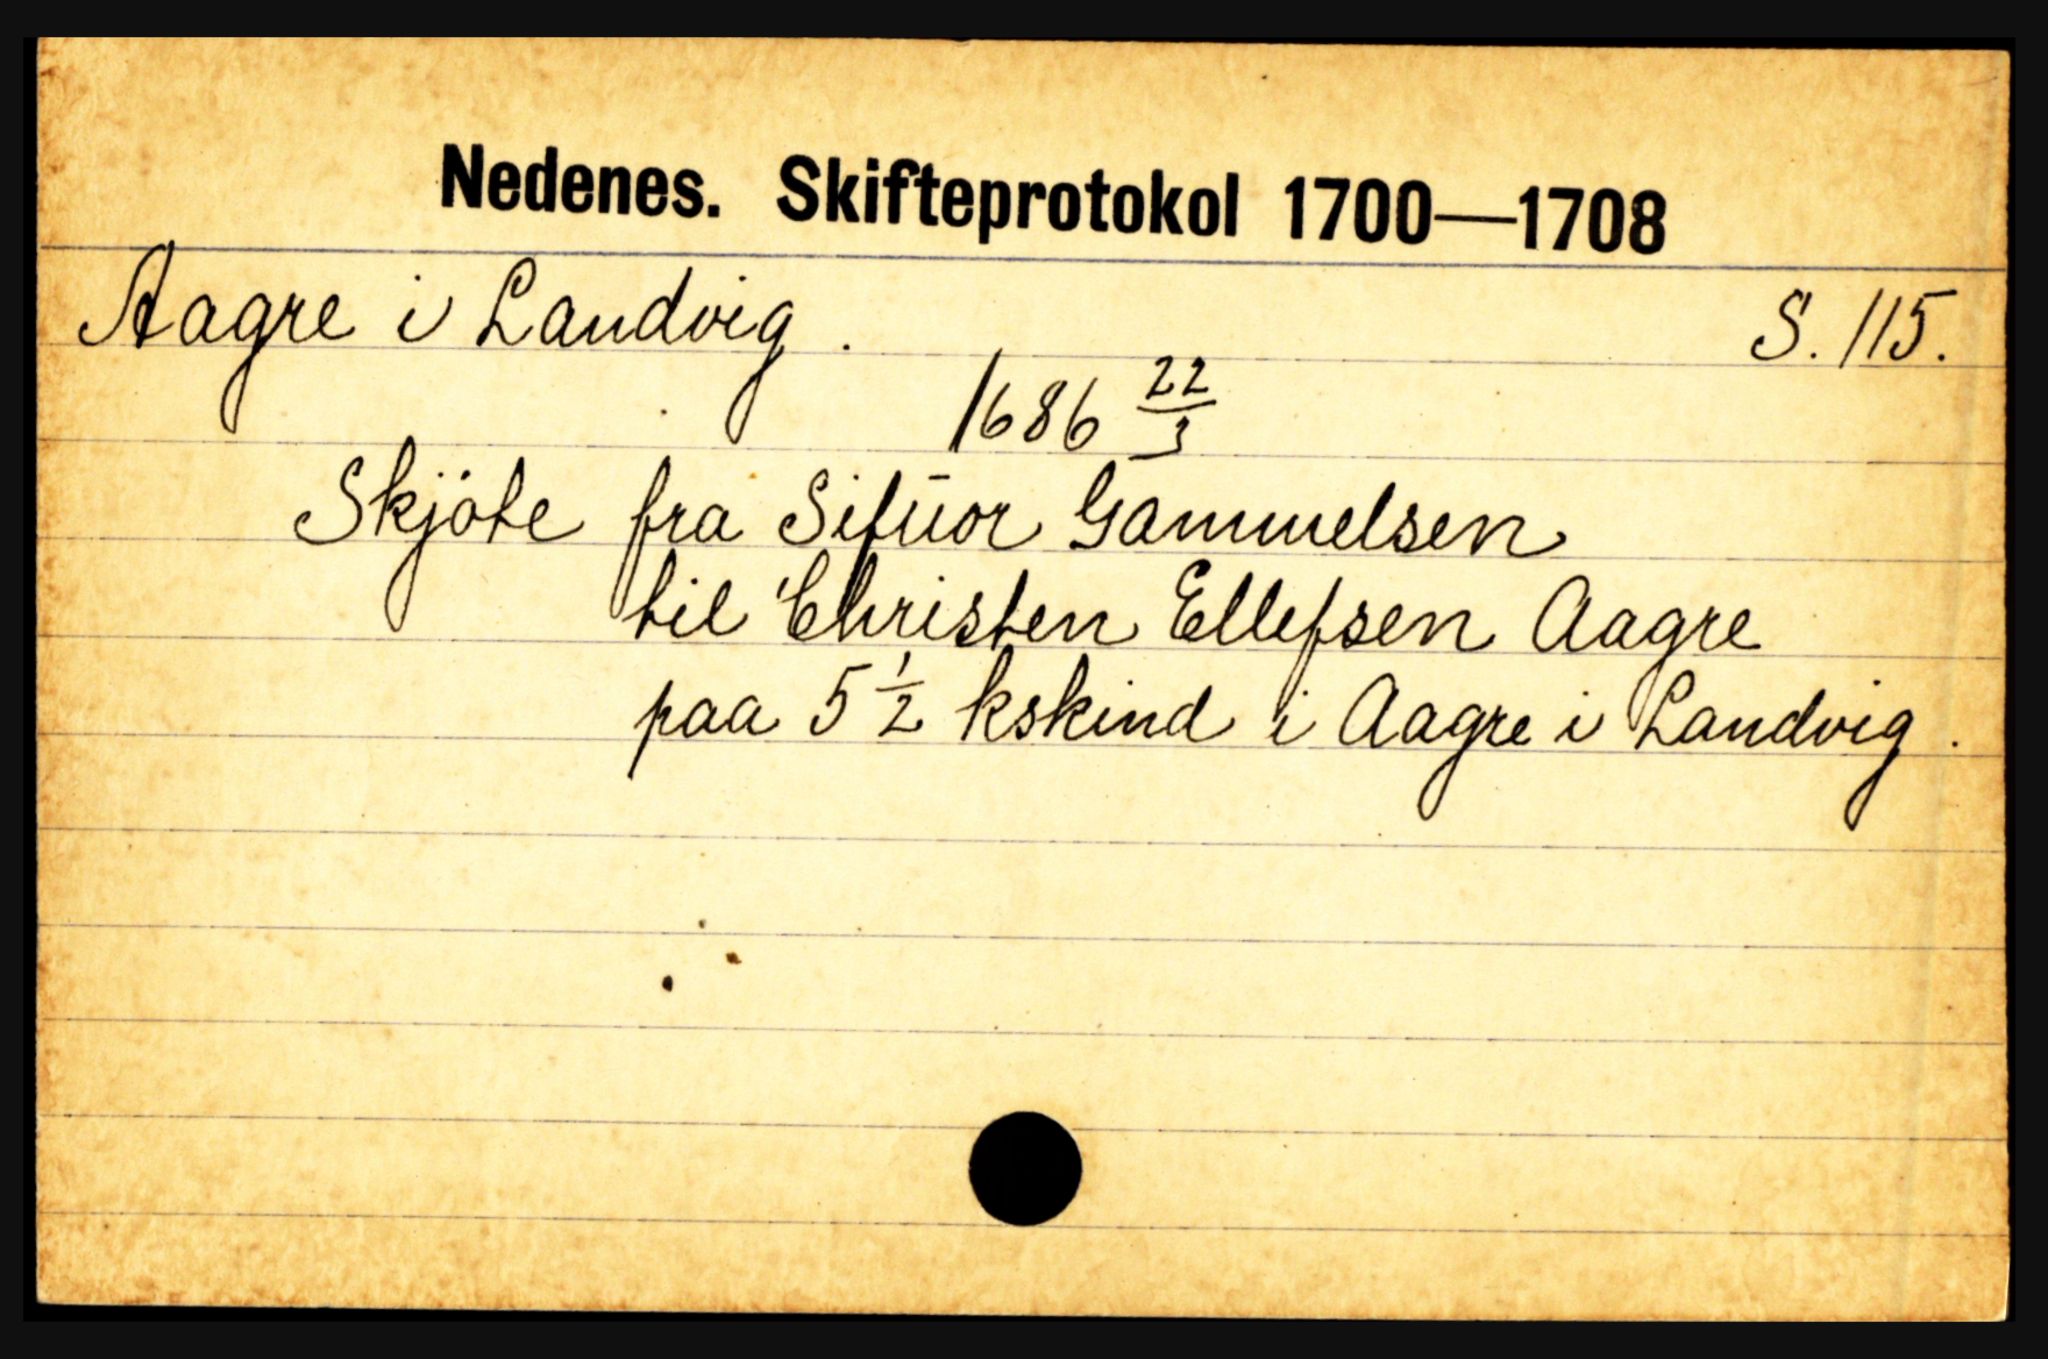 Nedenes. Skifteprotokol 1700—1708
Aagre i Landvig. S. 115.
1686 22/3
Skjöte fra Sifuor Gammelsen
til Christen Ellefsen Aagre
paa 5 1/2 kskind i Aagre i Landvig.